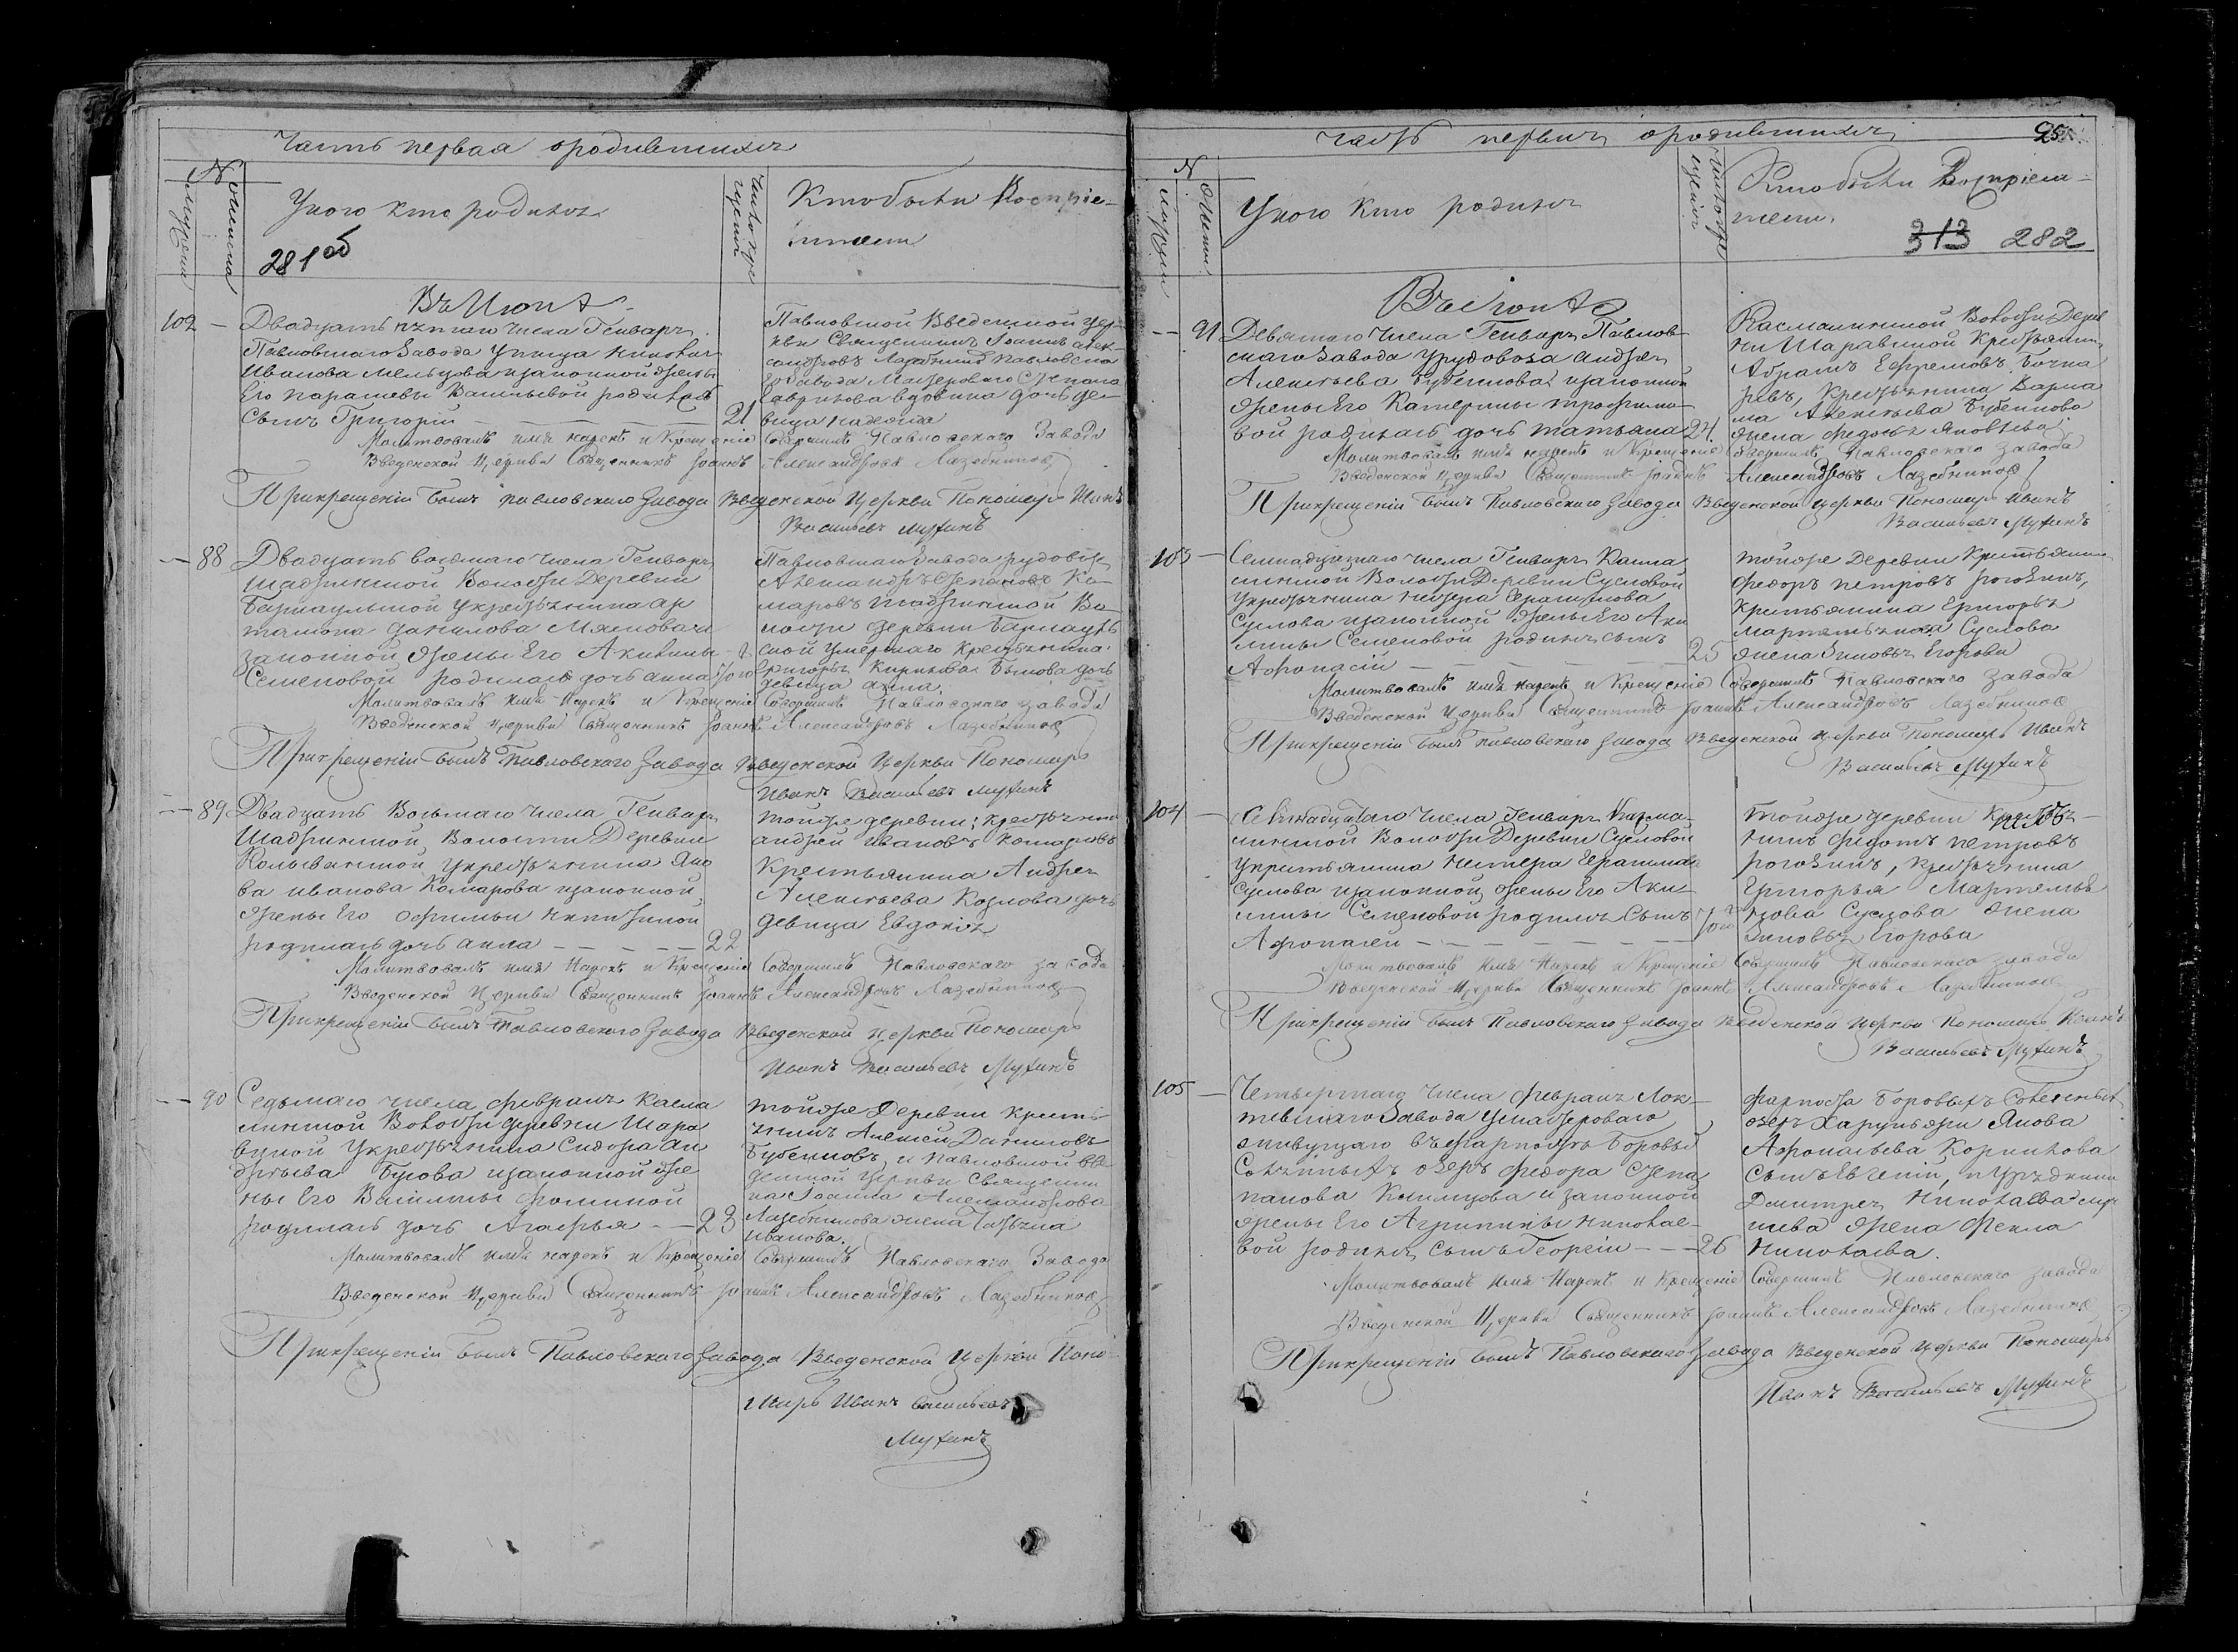 Часть первая ородившихся
№
Мужеска
Женска
У кого кто родился
281об
Число кре
щенія
Кто были Воспріе-
мники
Въ Іюнѣ
102 — Двадцать пятаго числа Генваря
Павловскаго Завода Унтера Николая
Иванова Мельцова изаконной жены
Его Парасковьи Васильевой родился
Сынъ Григорій — 21
Павловской Введенской Цер-
кви Священникъ Іоаннъ Алек-
сандровъ Лазебников Павловска
го Завода Мастероваго Степана
Гаврилова вдовина дочь де-
вица
Молитвовалъ имя нарекъ и Крещеніе Совершилъ Павловскаго Завода
Введенской Церкви Священникъ Іоаннъ Александровъ Лазебников
Прикрещеніи былъ Павловскаго Завода Введенской Церкви Пономарь Иванъ
Васильевъ Мухинъ
— 88 Двадцать восьмаго числа Генваря
Шадринской Волости Деревни
Барнаульской у крестьянина Ар
тамона Данилова
законной жены Его Акилины
Семеновой родилась дочь Анна
Павловскаго Завода рудовозъ
Александръ Степановъ Ко-
маровъ Шадринской Во
лости Деревни Барнауль
ской умершаго Крестьянина
Григорья Кирилова Быкова дочь
девица Анна.
Молитвовалъ имя Нарекъ и Крещеніе Совершилъ Павловскаго завода
Введенской Церкви Священникъ Іоаннъ Александровъ Лазебников
Прикрещеніи былъ Павловскаго Завода Введенской Церкви Пономарь
Иванъ Васильевъ Мухинъ
— 89 Двадцать Восьмаго числа Генваря
Шадринской Волости Деревни
Колыванской у крестьянина Яко
ва Иванова Комарова изаконной
жены Его Офимьи Никитиной
родилась дочь Анна — 22
Тойже деревни; Крестьянин
Андрей Ивановъ Комаровъ
Крестьянина Андрея
Алексѣева Козлова дочь
девица Евдокія
Молитвовалъ имя Нарекъ и Крещеніе Совершилъ Павловскаго завода
Введенской Церкви Священникъ Іоаннъ Александровъ Лазебников
Прикрещеніи былъ Павловскаго Завода Введенской Церкви Пономарь
Иванъ Васильевъ Мухинъ
— 90 Седьмаго числа Февраля Касма
линской Волости деревни Шара
виной у крестьянина Сидора Ан
дрѣева Бутова изаконной же
ны Его Василисы Фоминой
родилась дочь Агафья — 23
Тойже Деревни Кресть-
янинъ Алексей Даниловъ
Бубенновъ и Павловской Вве
денской Церкви Священни
ка Іоанна Александрова
Лазебникова жена Татьяна
Иванова.
Молитвовалъ имя нарекъ и Крещеніе Совершилъ Павловскаго Завода
Введенской Церкви Священникъ Іоаннъ Александровъ Лазебников
Прикрещеніи былъ Павловскаго Завода Введенской Церкви Поно
марь Иванъ Васильевъ
Мухинъ
Часть первая ородившихся
95
№
У кого кто родился
Кто были Воспріем-
ники
313 282
Въ Іюнѣ
— 91 Девятаго числа Генваря Павлов-
скаго Завода У рудовоза Андрея
Алексѣева Бубеннова изаконной
жены Его Катерины Трофимо-
вой родилась дочь Татьяна 24.
Касмалинской Волости Дерев
ни Шаравиной Крестьянин
Абрамъ Ефремовъ Бочка
ревъ, Крестьянина Варла
ма Алексѣева Бубеннова
жена Федосья Яковлева
Молитвовалъ имя нарекъ и Крещеніе Совершилъ Павловскаго завода
Введенской Церкви Священникъ Іоаннъ Александровъ Лазебников
Прикрещеніи былъ Павловскаго Завода Введенской Церкви Пономарь Иванъ
Васильевъ Мухинъ
103 — Семнадцатаго числа Генваря Касма
линской Волости Деревни Сусловой
У крестьянина Нестера Герасимова
Суслова изаконной жены Его Аки
лины Семеновой родился сынъ
Афонасій — 25
Тойже Деревни Крестьянин
Федоръ Петровъ Рогозинъ,
Крестьянина Григорья
Мартемьянова Суслова
жена Зиновья Егорова
Молитвовалъ имя нарекъ и Крещеніе Совершилъ Павловскаго завода
Введенской Церкви Священникъ Іоаннъ Александровъ Лазебников
Прикрещеніи былъ Павловскаго Завода Введенской Церкви Пономарь Иванъ
Васильевъ Мухинъ
104 — Семнадцатаго числа Генваря Касма-
линской Волости Деревни Сусловой
У крестьянина Нестера Герасимова
Суслова изаконной жены Его Аки
лины Семеновой родился Сынъ
Афонасей —
Тойже деревни Крестья-
нинъ Федотъ Петровъ
Рогозинъ, Крестьянина
Григорья Мартемья
нова Суслова жена
Зиновья Егорова
Молитвовалъ имя Нарекъ и Крещеніе Совершилъ Павловскаго завода
Введенской Церкви Священникъ Іоаннъ Александровъ Лазебников
Прикрещеніи былъ Павловскаго Завода Введенской Церкви Пономарь Иванъ
Васильевъ Мухинъ
105 — Четвертаго числа Февраля Лок-
тевскаго Завода Умастероваго
живущаго въ форпостѣ Боровыхъ
Соленыхъ озеръ Федора Степа
панова Климцова изаконной
жены Его Агрипины Николае-
вой родился сынъ Георгій — 26
Фарпоста Боровыхъ Соленыхъ
озеръ Якова
Афонасьева Корникова
сынъ Евгеній, и Урядника
Дмитрея Николаева
жена Фекла
Николаева.
Молитвовалъ имя Нарекъ и Крещеніе Совершилъ Павловскаго завода
Введенской Церкви Священникъ Іоаннъ Александровъ Лазебников
Прикрещеніи былъ Павловскаго Завода Введенской Церкви Пономарь
Иванъ Васильевъ Мухинъ